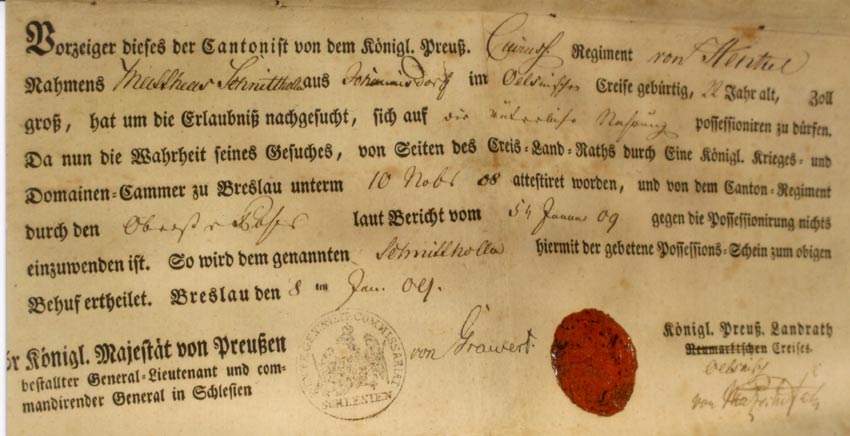 Vorzeiger dieses der Cantonist von dem Königl. Preuß. Regiment von Henkel
Nahmens Matthaeus Schnittholla aus im Oelsnischen Creise gebürtig, 22 Jahr alt, Zoll
groß, hat um die Erlaubniß nachgesucht, sich auf die väterliche Nahrung possessioniren zu dürfen.
Da nun die Wahrheit seines Gesuches, von Seiten des Creis-Land-Raths durch Eine Königl. Krieges- und
Domainen-Cammer zu Breslau unterm 10 Nobr 08 attestiret worden, und von dem Canton-Regiment
durch den Oberst v laut Bericht vom 5t Januar 09 gegen die Possessionirung nichts
einzuwenden ist. So wird dem genannten Schnittholla hiermit der gebetene Possessions-Schein zum obigen
Behuf ertheilet. Breslau den 8ten Jan. 09.
r Königl. Majestät von Preußen
bestallter General-Lieutenant und com-
mandirender General in Schlesien
COMMISSARIAT
SCHLESIEN
von Grawert.
Königl. Preuß. Landrath
Neumarktschen Creises.
Oelsnisch
von